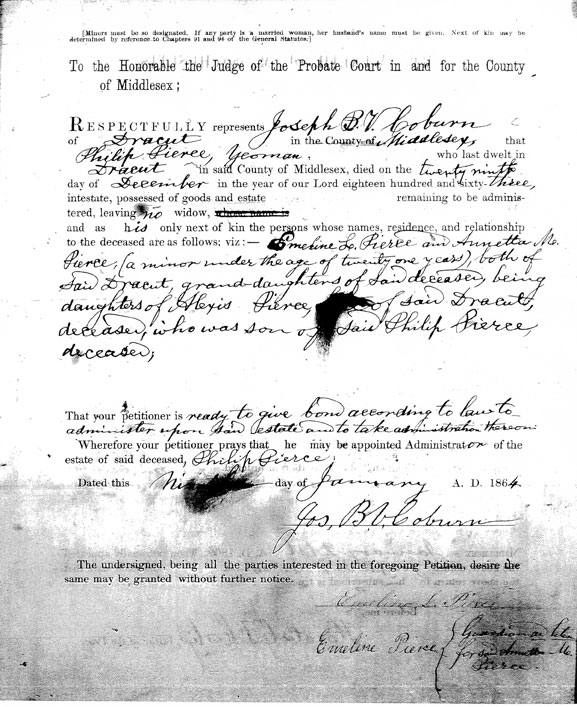 [Minors must be so designated. If any party is a married woman, her husband's name must be given. Next of kin may be
determined by reference to Chapters 91 and 94 of the General Statutes.]
To the Honorable the Judge of the Probate Court in and for the County
of Middlesex;
RESPECTFULLY represents Joseph B. V. Coburn
of Dracut in the County of Middlesex, that
Philip Pierce, Yeoman, who last dwelt in
Dracut in said County of Middlesex, died on the twenty ninth
day of December in the year of our Lord eighteen hundred and sixty-three,
intestate, possessed of goods and estate remaining to be adminis-
tered, leaving no widow, whose name is
and as his only next of kin the persons whose names, residence, and relationship
to the deceased are as follows; viz:— Emeline L. Pierce and Annetta M.
Pierce, (a minor under the age of twenty one years), both of
said Dracut, grand-daughters of said deceased, being
daughters of Alexis Pierce, of said Dracut,
deceased, who was son of said Philip Pierce,
deceased;
That your petitioner is ready to give bond according to law to
administer upon said estate and to take administration thereon.
Wherefore your petitioner prays that he may be appointed Administrator of the
estate of said deceased, Philip Pierce;
Dated this day of January A. D. 1864.
Jos, B. V. Coburn
The undersigned, being all the parties interested in the foregoing Petition, desire the
same may be granted without further notice.
Emeline L. Pierce
Emeline Pierce Guardian ad
for said Annetta M.
Pierce.